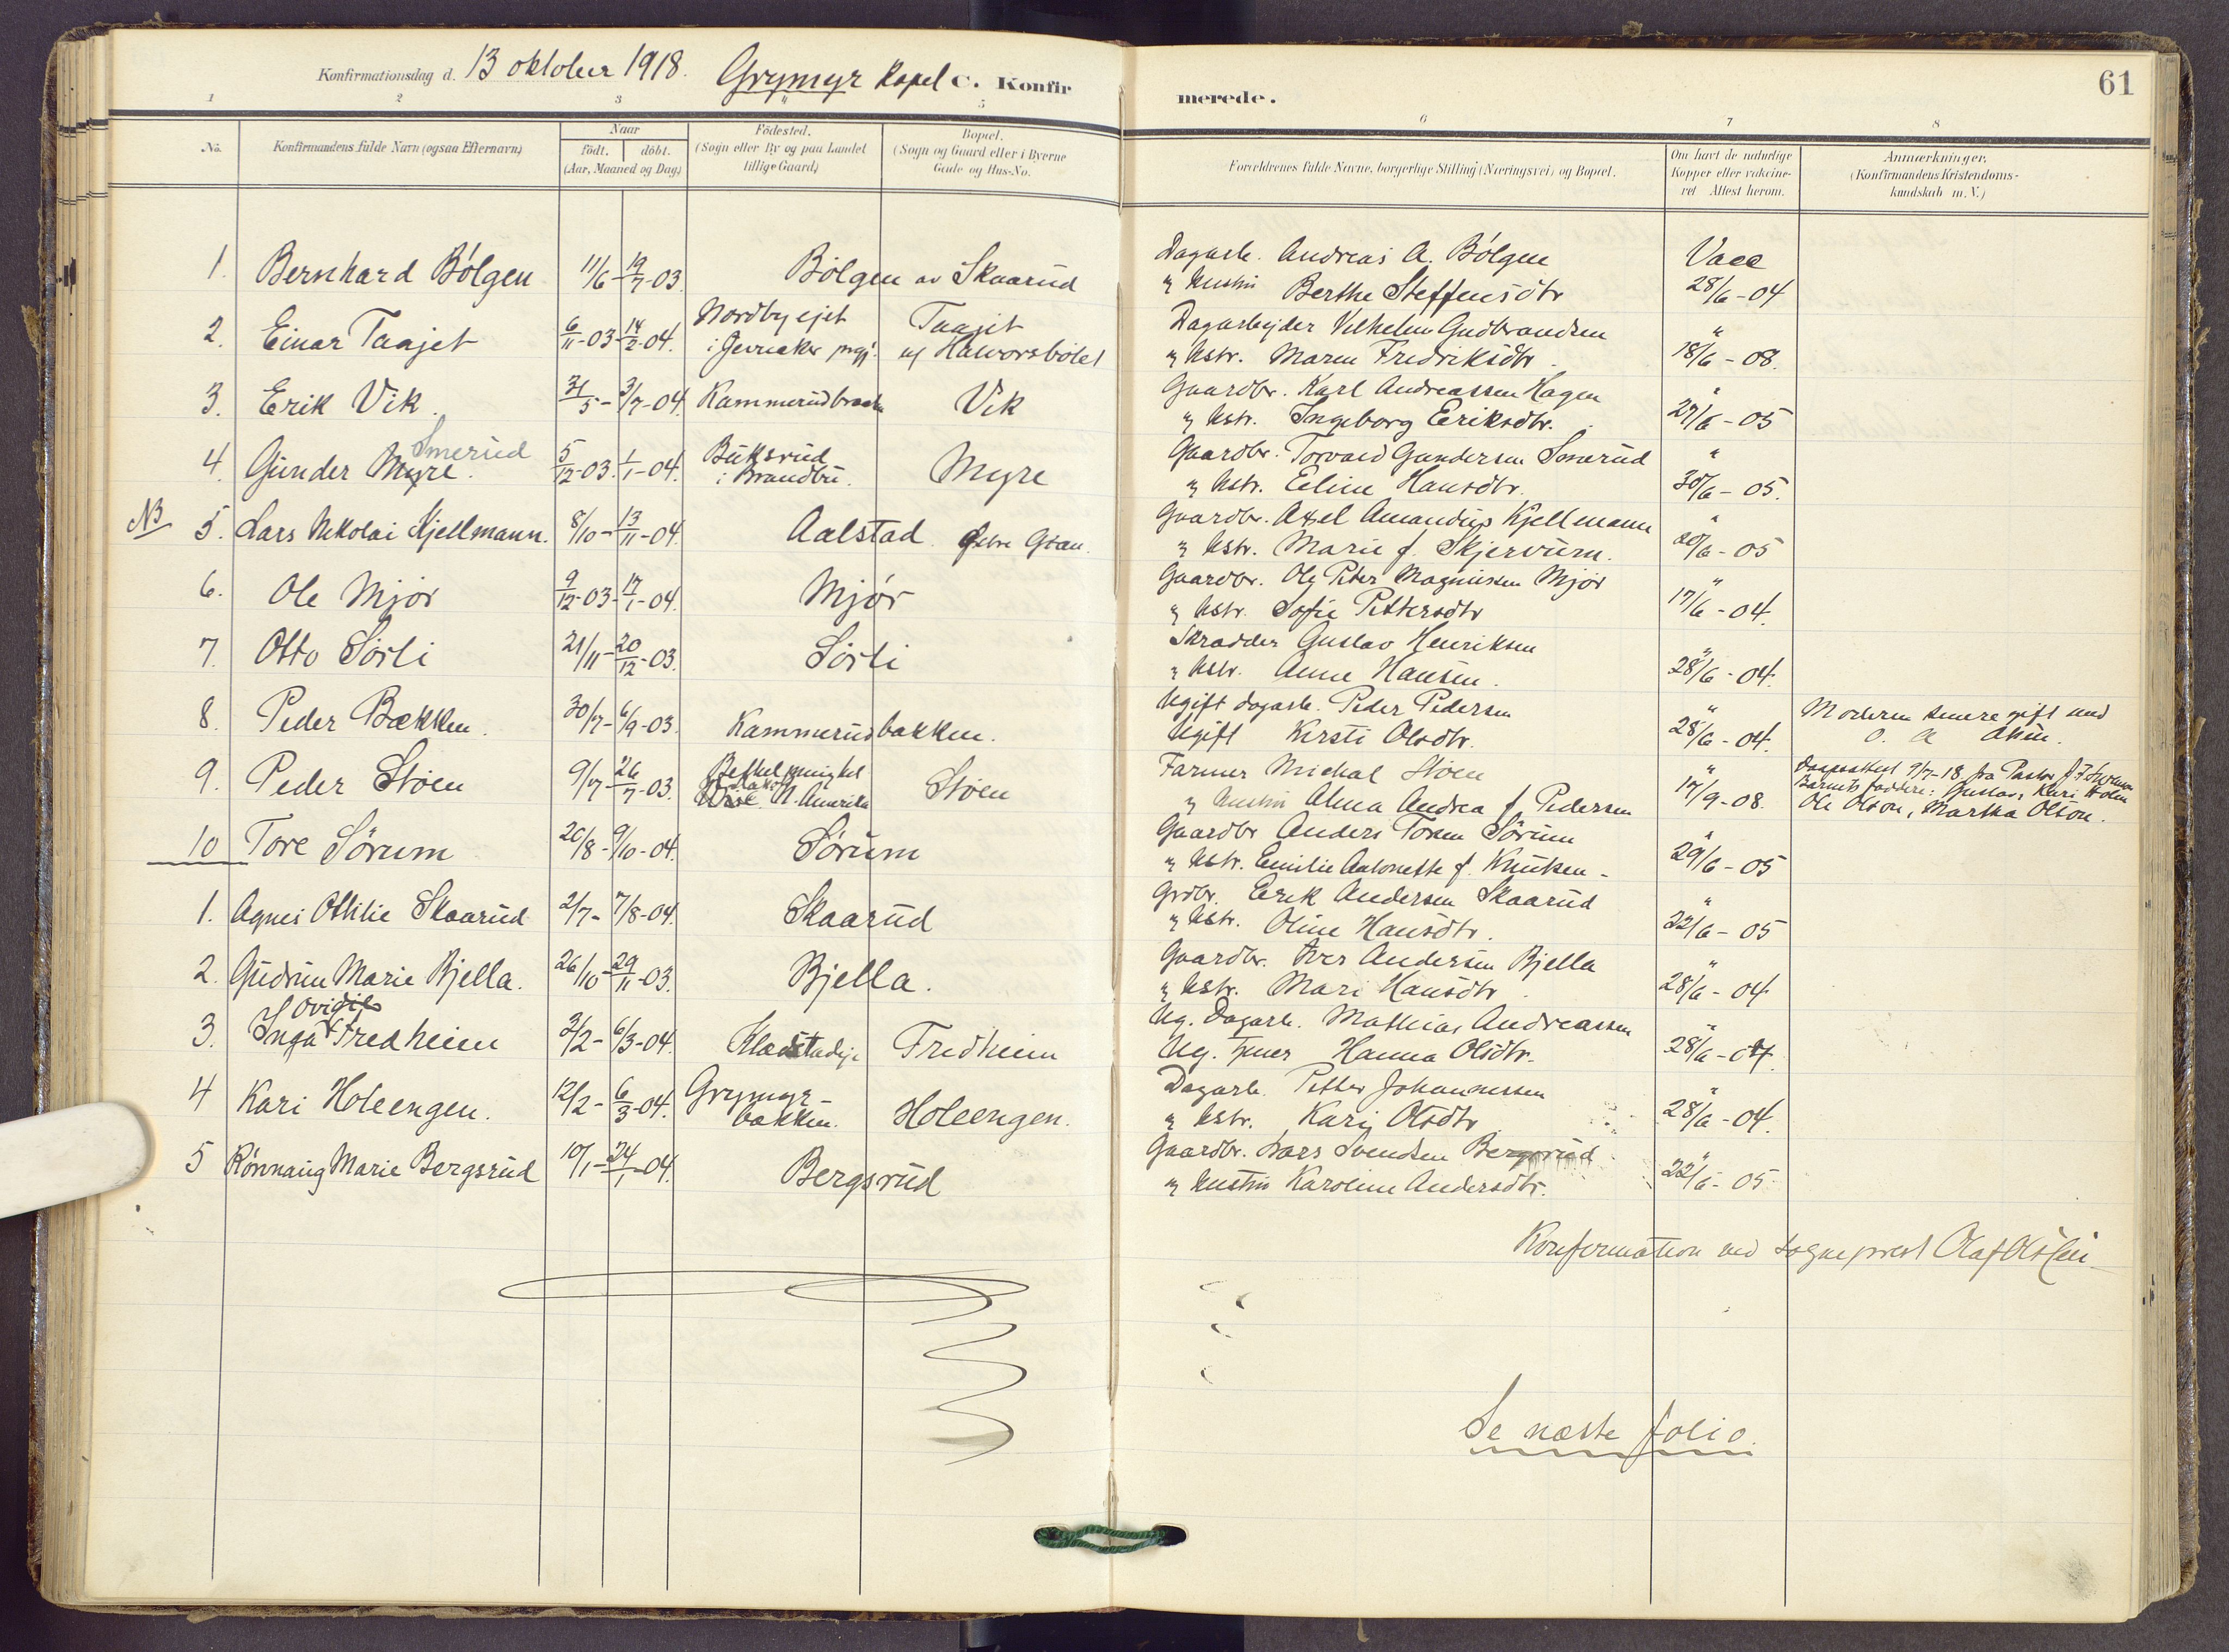 Konfirmationsdag d. 13 oktober 1918. Grymyr Kapel C. Konfirmerede. 61
1 2 3 4 5 6 7 8
No. Konfirmandens fulde Navn (ogsaa Efternavn) Naar født. døbt. (Aar, Maaned og Dag) Fødested. (Sogn eller By og paa Landet tillige Gaard) Bopæl. (Sogn og Gaard eller i Byerne Gade og Hus-No. Forældrenes fulde Navne, borgerlige Stilling (Næringsvei) og Bopæl. Om havt de naturlige Kopper eller vakcineret Attest herom. Anmærkninger. (Konfirmandens Kristendomskundskab m. V.)
1. Bernhard Bölgen 11/6 - 19/7-03. Bölgen av Skaarud Dagarb. Andreas A. Bölgen Vacc
og hustru Berthe Steffensdtr 28/6-04
2. Einar Taajet 6/11-03 14/2-04. Nordbyejet Taajet Dagarbejder Vilhelm Gudbrandsen "
i Jevnaker prgj. af Halvorsbölet og hstr. Maren Fredriksdtr. 18/6-08.
3. Erik Vik. 31/5 - 3/7-04. Kammerudbraaten Vik Gaardbr. Karl Andreassen Hagen "
og hstr. Ingeborg Eriksdtr. 27/6-05
Smerud
4. Gunder Myre. 5/12-03. 1/1-04. Buksrud Myre Gaardbr. Torvald Gundersen Smerud "
i Brandbu. og hstr. Eline Hansdtr. 30/6-05.
NB 5. Lars Nikolai Kjellmann. 8/10 - 13/11-04. Aalstad Gran. Gaardbr. Axel Amandus Kjellmann "
og hstr. Marie f. Skjervum. 20/6-05
6. Ole Mjör 9/12-03. 17/1-04. Mjör Gaardbr. Ole Peter Magnussen Mjör "
og hstr. Sofie Pettersdtr 17/6-04.
7. Otto Sörli 21/11 - 20/12-03. Sörli Skrædder Gustav Henriksen "
og hstr. Anne Hansen. 28/6-04.
8. Peder Bækken. 30/7 - 6/9-03. Kammerudbakken. Ugift dagarb. Peder Pedersen " Moderen senere gift med
Ugift Kirsti Olsdtr. 28/6-04. O. A.
9. Peder Stöen 9/7 - 26/7-03. Bethel N. Amerika Stöen Farmer Michal Stöen " Daapsattest 9/7-18 fra Pastor
og hustru Alma Andrea f. Pedersen 17/9-08. Barnets faddere: Gustav, Kari Holm
Ole Olson, Martha Olson.
10 Tore Sörum 20/8 - 9/10-04. Sörum Gaardbr Anders Toresen Sörum "
og hstr. Emilie Antonette f. Knutsen - 29/6-05
1. Agnes Othilie Skaarud 2/7 - 7/8-04. Skaarud Grdbr. Erik Andersen Skaarud "
og hstr. Oline Hansdtr. 22/6-05
2. Gudrun Marie Bjella. 26/10 - 29/11-03. Bjella. Gaardbr. Iver Andersen Bjella "
og hstr. Mari Hansdtr. 28/6-04
Ovidie
3. Inga Fredheim 3/2 - 6/3-04. Fredheim Ug. Dagarb. Mathias Andreassen "
Ug. Hanna Olsdtr. 28/6-04.
4 Kari Holeengen. 12/2 - 6/3-04. Grymyr- Holeengen. Dagarb. Petter Johannessen "
bakken. og hstr. Kari Olsdtr 28/6-04.
5 Rönnaug Marie Bergsrud 10/1 - 24/1-04. Bergsrud Gaardbr. Lars Svendsen Bergsrud "
og hustru Karoline Andersdtr. 22/6-05.
Konfirmation ved sogneprest Olaf
Se næste folio.